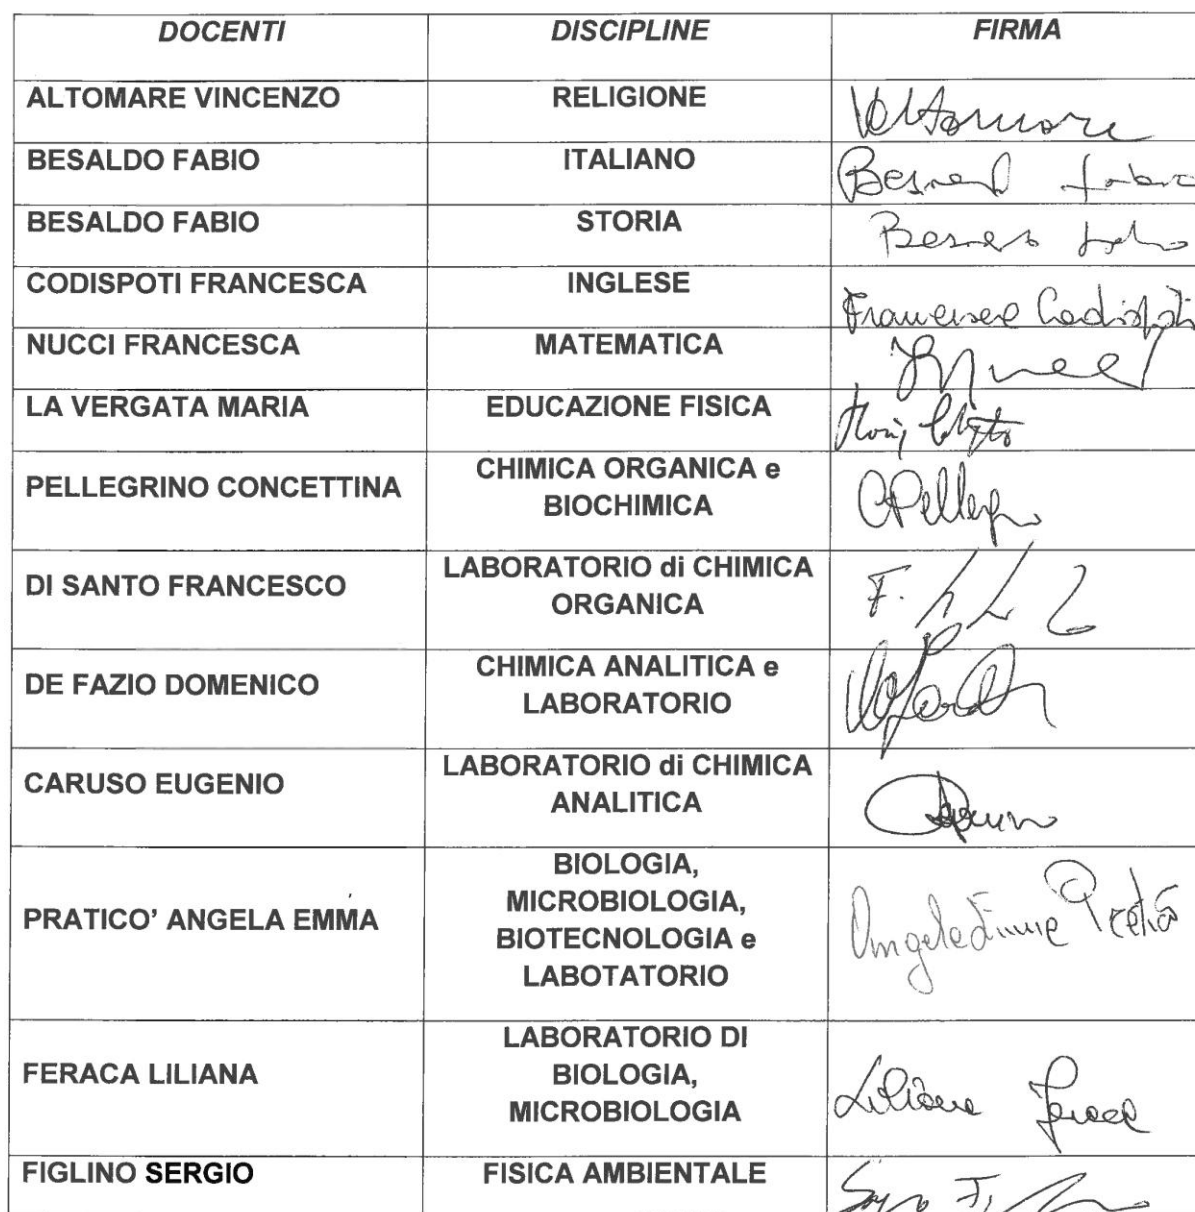 DOCENTI DISCIPLINE FIRMA
ALTOMARE VINCENZO RELIGIONE
BESALDO FABIO ITALIANO
BESALDO FABIO STORIA
CODISPOTI FRANCESCA INGLESE Francesca Codispoti
NUCCI FRANCESCA MATEMATICA
LA VERGATA MARIA EDUCAZIONE FISICA
PELLEGRINO CONCETTINA CHIMICA ORGANICA e
BIOCHIMICA
DI SANTO FRANCESCO LABORATORIO di CHIMICA
ORGANICA
DE FAZIO DOMENICO CHIMICA ANALITICA e
LABORATORIO
CARUSO EUGENIO LABORATORIO di CHIMICA
ANALITICA
PRATICO' ANGELA EMMA BIOLOGIA,
MICROBIOLOGIA,
BIOTECNOLOGIA e
LABOTATORIO
FERACA LILIANA LABORATORIO DI
BIOLOGIA,
MICROBIOLOGIA
Liliana Feraca
FIGLINO SERGIO FISICA AMBIENTALE